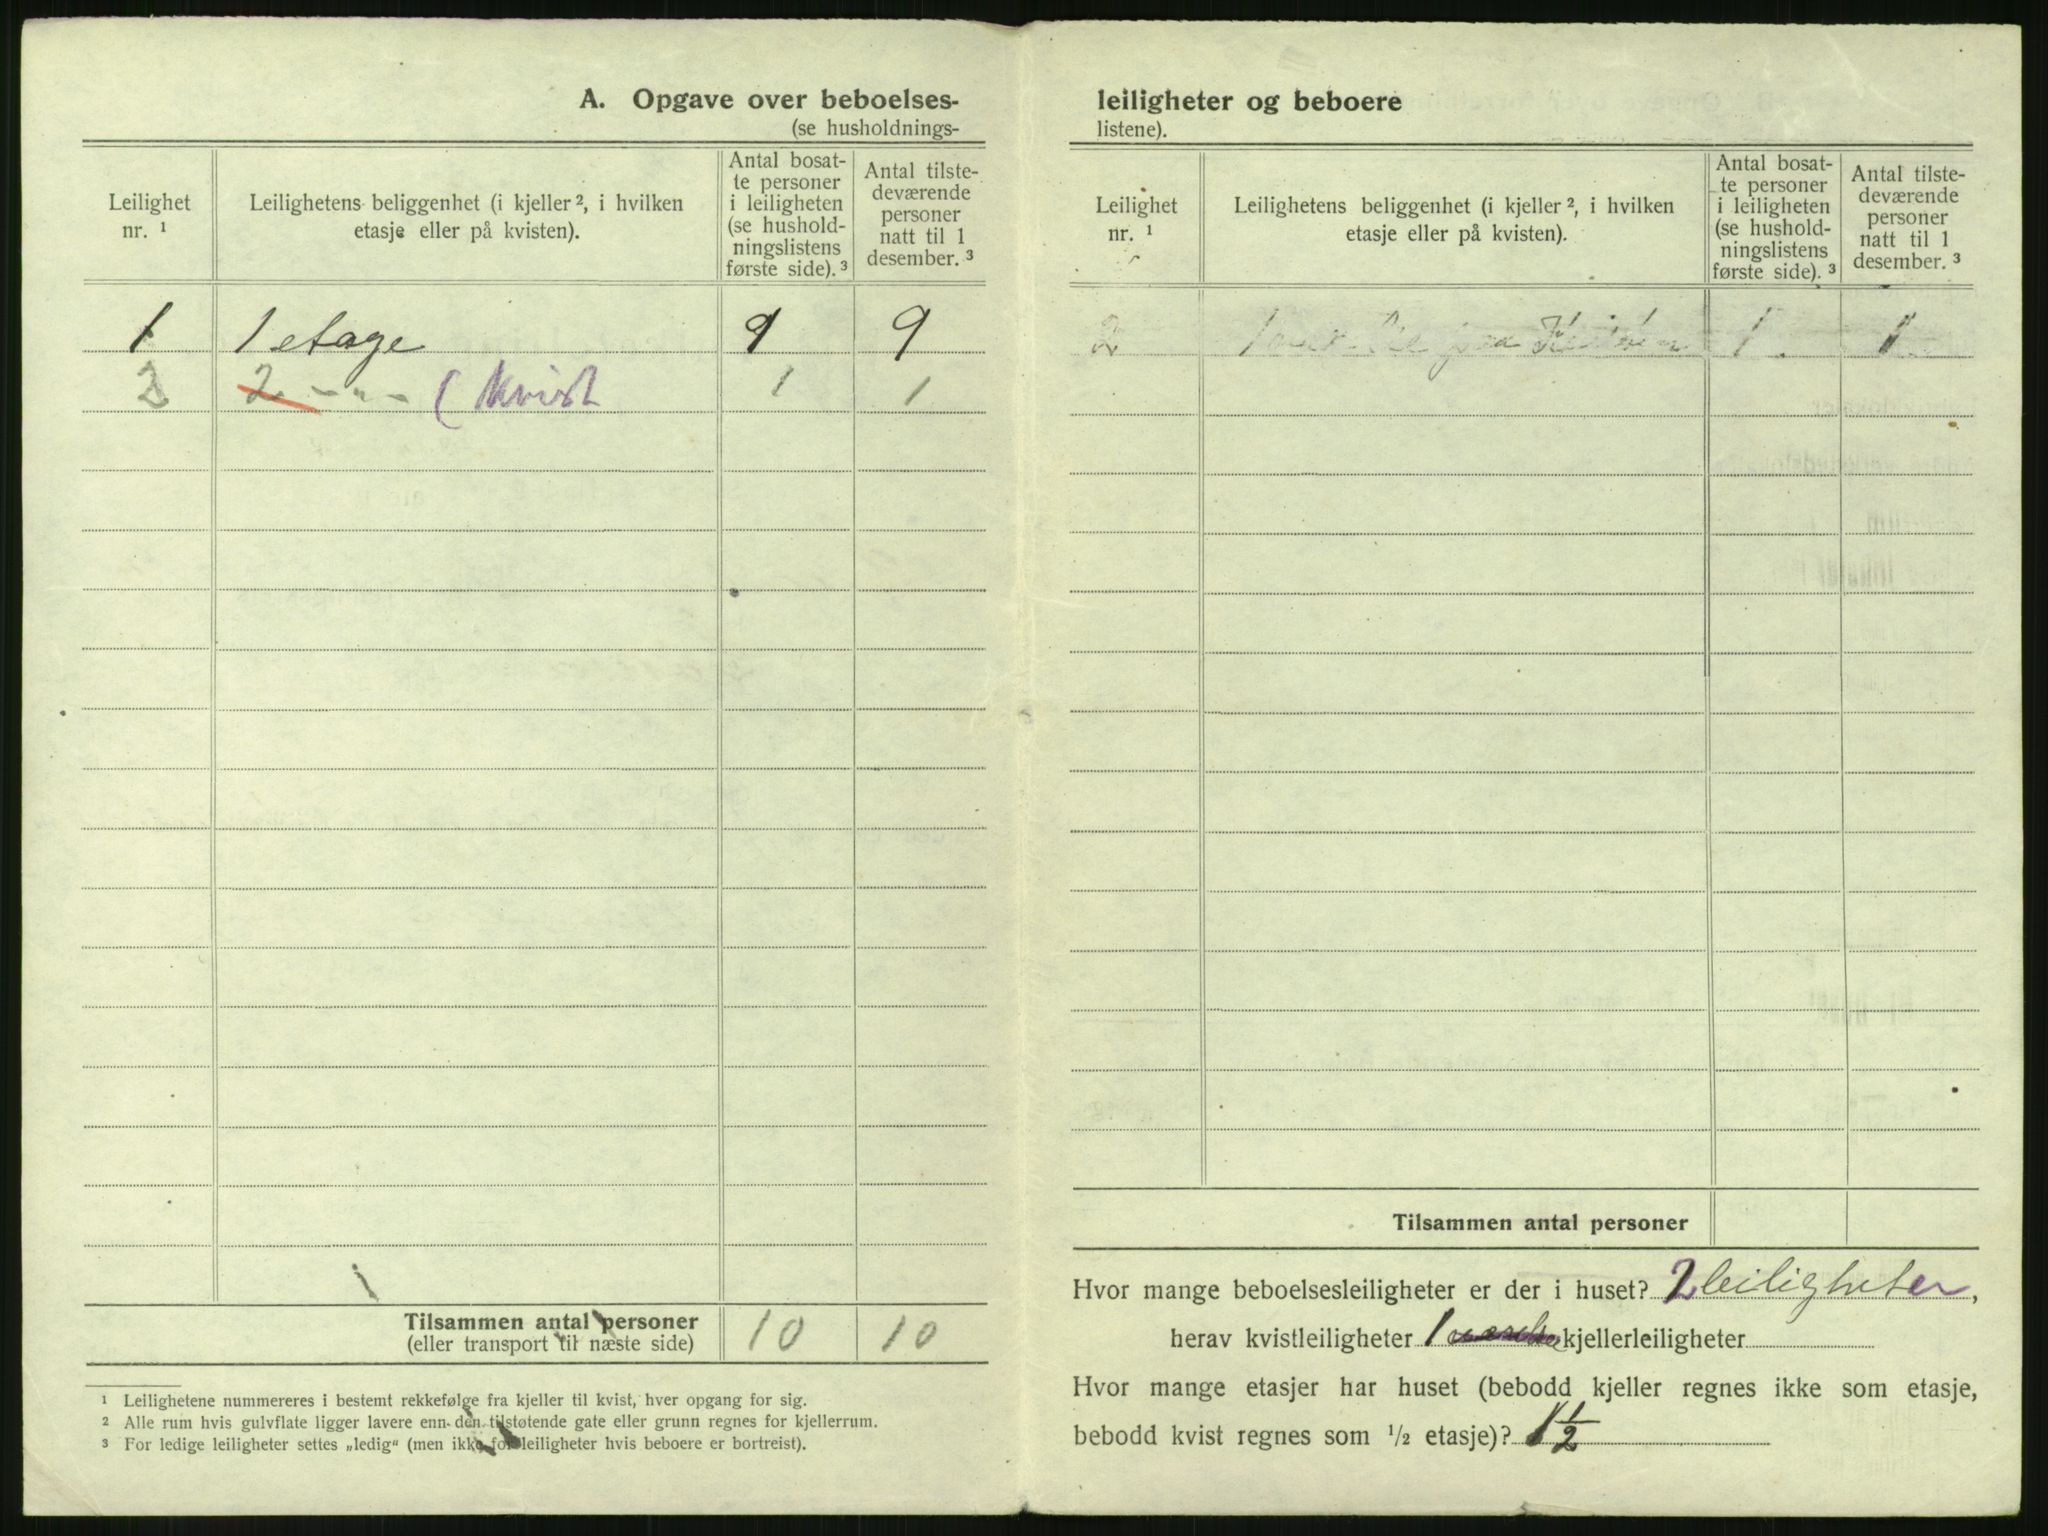 A. Opgave over beboelses-
(se husholdnings-
Leilighet
nr. ¹
Leilighetens beliggenhet (i kjeller ², i hvilken
etasje eller på kvisten).
Antal bosat-
te personer
i leiligheten
(se hushold-
ningslistens
første side). ³
Antal tilste-
deværende
personer
natt til 1
desember. ³
1 1 etage 9 9
2 2 - " - ( kvist 1 1
Tilsammen antal personer
(eller transport til næste side) 10 10
¹ Leilighetene nummereres i bestemt rekkefølge fra kjeller til kvist, hver opgang for sig.
² Alle rum hvis gulvflate ligger lavere enn den tilstøtende gate eller grunn regnes for kjellerrum.
³ For ledige leiligheter settes „ledig“ (men ikke for leiligheter hvis beboere er bortreist).
leiligheter og beboere
listene).
Leilighet
nr. ¹
Leilighetens beliggenhet (i kjeller ², i hvilken
etasje eller på kvisten).
Antal bosat-
te personer
i leiligheten
(se hushold-
ningslistens
første side). ³
Antal tilste-
deværende
personer
natt til 1
desember. ³
2 1 paa 1 1
Tilsammen antal personer
Hvor mange beboelsesleiligheter er der i huset? 2 leiligheter,
herav kvistleiligheter 1 kjellerleiligheter
Hvor mange etasjer har huset (bebodd kjeller regnes ikke som etasje,
bebodd kvist regnes som ½ etasje)? 1½